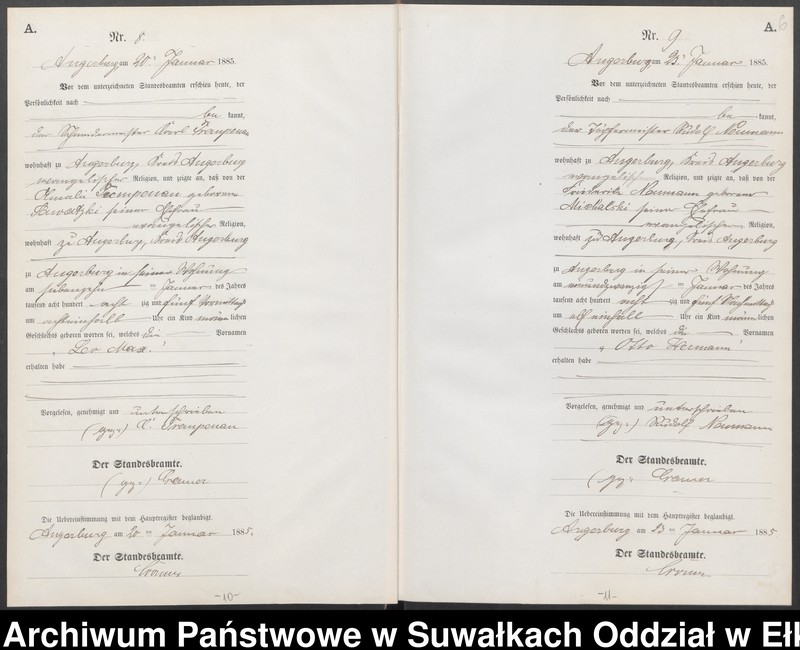 A.
Nr. 8
Angerburg am 20. Januar 1885.
Vor dem unterzeichneten Standesbeamten erschien heute, der
Persönlichkeit nach
be kannt,
der Schneidermeister Karl
wohnhaft zu Angerburg, Kreis Angerburg
evangelischer Religion, und zeigte an, daß von der
Amalie geborenen
seiner Ehefrau
evangelischer Religion,
wohnhaft zu Angerburg, Kreis Angerburg
zu Angerburg in seiner Wohnung
am siebenzehn ten Januar des Jahres
tausend acht hundert acht zig und fünf Vormittags
um achteinhalb Uhr ein Kind männ lichen
Geschlechts geboren worden sei, welches die Vornamen
„Leo Max.“
erhalten habe
Vorgelesen, genehmigt und unterschrieben
(gez.) K.
Der Standesbeamte.
(gez.) Cramer
Die Uebereinstimmung mit dem Hauptregister beglaubigt.
Angerburg am 20 ten Januar 1885.
Der Standesbeamte.
Cramer
-10-
A.
6
Nr. 9
Angerburg am 23. Januar 1885.
Vor dem unterzeichneten Standesbeamten erschien heute, der
Persönlichkeit nach
be kannt,
der Töpfermeister Rudolf Neumann
wohnhaft zu Angerburg, Kreis Angerburg
evangelischer Religion, und zeigte an, daß von der
Friederike Neumann geborenen
Michalski seiner Ehefrau
evangelischer Religion,
wohnhaft zu Angerburg, Kreis Angerburg
zu Angerburg in seiner Wohnung
am neunundzwanzigs ten Januar des Jahres
tausend acht hundert acht zig und fünf
um elf einhalb Uhr ein Kind männ lichen
Geschlechts geboren worden sei, welches die Vornamen
„Otto Hermann“
erhalten habe
Vorgelesen, genehmigt und unterschrieben
(gez.) Rudolf Neumann
Der Standesbeamte.
(gez. Cramer
Die Uebereinstimmung mit dem Hauptregister beglaubigt.
Angerburg am 23 ten Januar 1885
Der Standesbeamte.
Cramer
-11-
Archiwum Państwowe w Suwałkach Oddział w Ełk